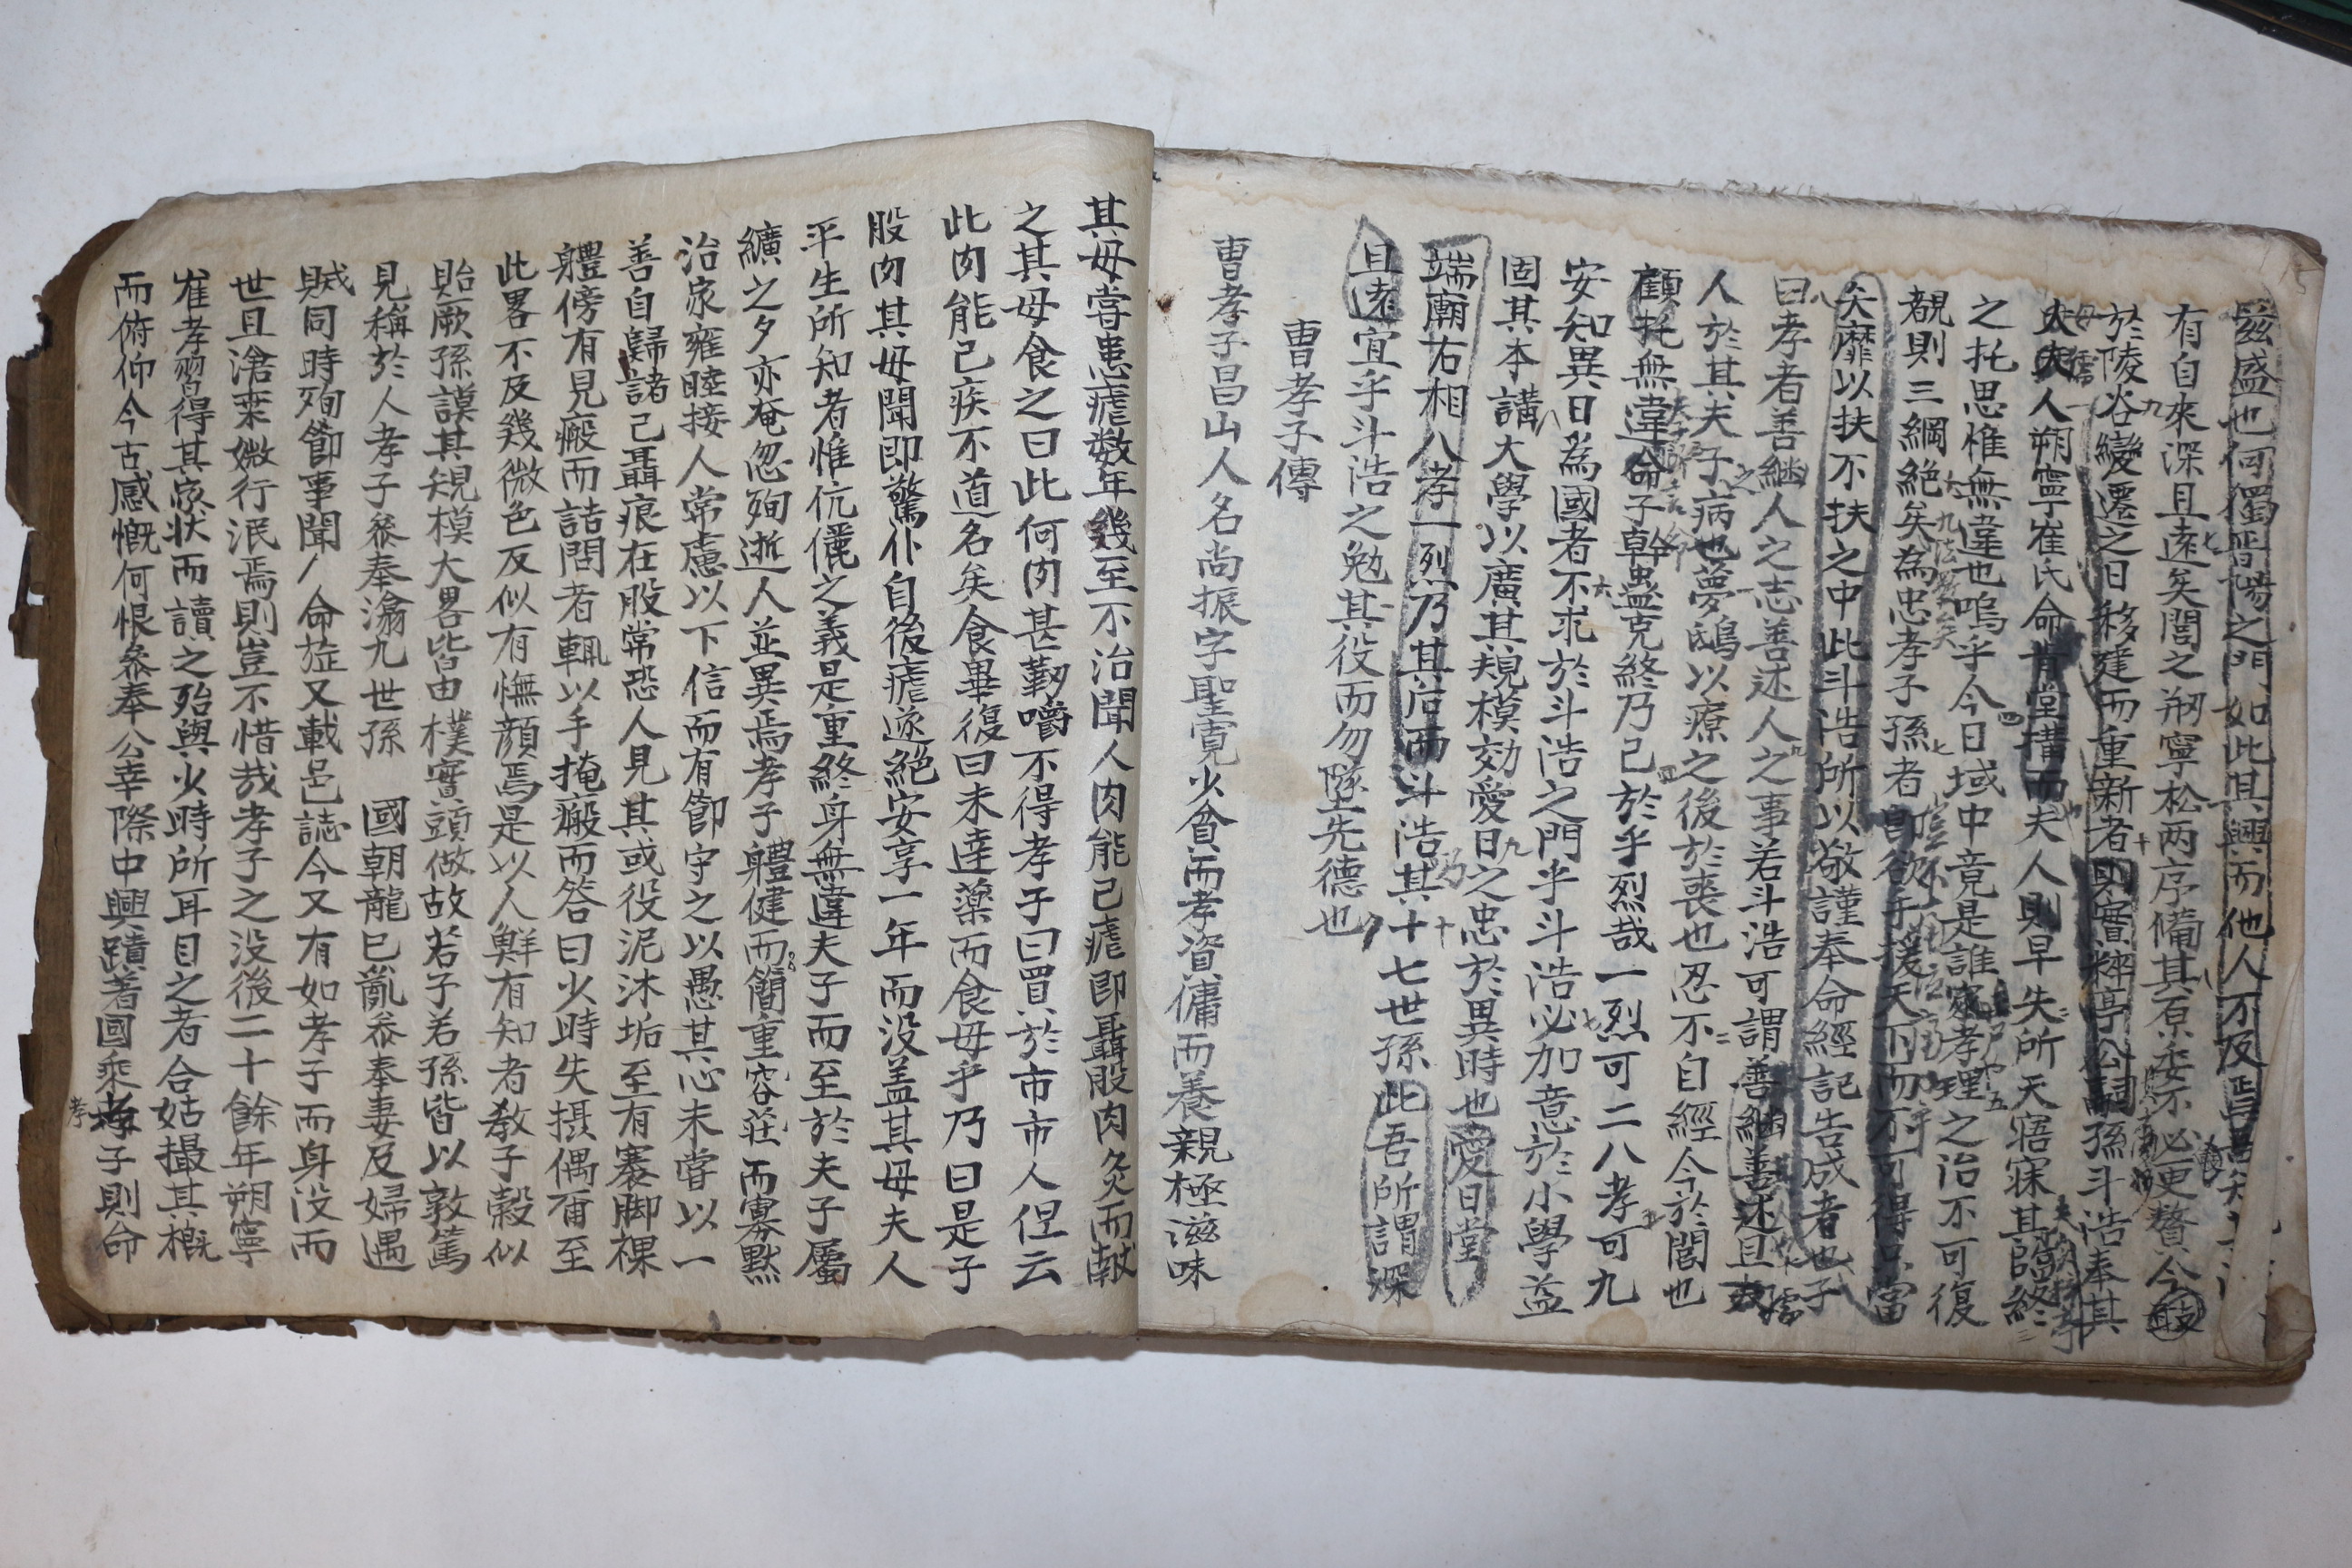 茲盛也何獨晋陽之門如此其興而他人不及
有自來深且遠矣閭之刱寧松兩序備其原委不必更贅今
於陵谷變遷之日移建而重新者則實粹亭公嗣孫斗浩奉其
人朔寧崔氏命肯堂構而夫人則早失所天寤寐其臨終
之托思惟無違也嗚乎今日域中竟是誰家孝理之治不可復
覩則三綱絶矣為忠孝子孫者欲手援天下而不可得只當
矢靡以扶不扶之中此斗浩所以敬謹奉命經記告成者也子
曰孝者善繼人之志善述人之事若斗浩可謂善繼善述且
人於其夫子病也夢鴟以療之後於喪也忍不自經今於閭也
顧托無違命子幹蠱克終乃已於乎烈哉一烈可二八孝可九
安知異日為國者不求於斗浩之門乎斗浩必加意於小學益
固其本講大學以廣其規模効愛日之忠於異時也愛日堂
端廟右相八孝一烈乃其后而斗浩其十七世孫此吾所謂深
且遠宜乎斗浩之勉其役而勿墜先德也
曺孝子傳
曺孝子昌山人名尚振字聖寬少貧而孝資傭而養親極滋味
其母嘗患瘧数年幾至不治聞人肉能已瘧即聶股肉灸而献
之其母食之曰此何肉甚靭嚼不得孝子曰買於市市人但云
此肉能已疾不道名矣食畢復曰未達藥而食母乎乃曰是子
股肉其母聞即驚仆自後瘧遂絕安享一年而没盖其母夫人
平生所知者惟伉儷之義是重終身無違夫子而至於夫子屬
纊之夕亦奄忽殉逝人並異焉孝子軆健而簡重容莊而寡默
治家雍睦接人常慮以下信而有節守之以愚其心未嘗以一
善自歸諸己聶痕在股常恐人見其或役泥沐垢至有褰脚裸
軆傍有見瘢而詰問者輒以手掩瘢而答曰少時失摄偶爾至
此畧不及幾微色反似有憮顔焉是以人鮮有知者教子穀似
貽厥孫謨其規模大畧皆由樸實頭做故若子若孫皆以敦篤
見稱於人孝子叅奉瀹九世孫 國朝龍巳亂叅奉妻及婦遇
賊同時殉節事聞 命旌又載邑誌今又有如孝子而身没而
世且滄桒媺行泯焉則豈不惜哉孝子之没後二十餘年朔寧
崔孝習得其家状而讀之殆與少時所耳目之者合姑撮其概
而俯仰今古感慨何恨叅奉公幸際中興蹟著國乘孝子則命